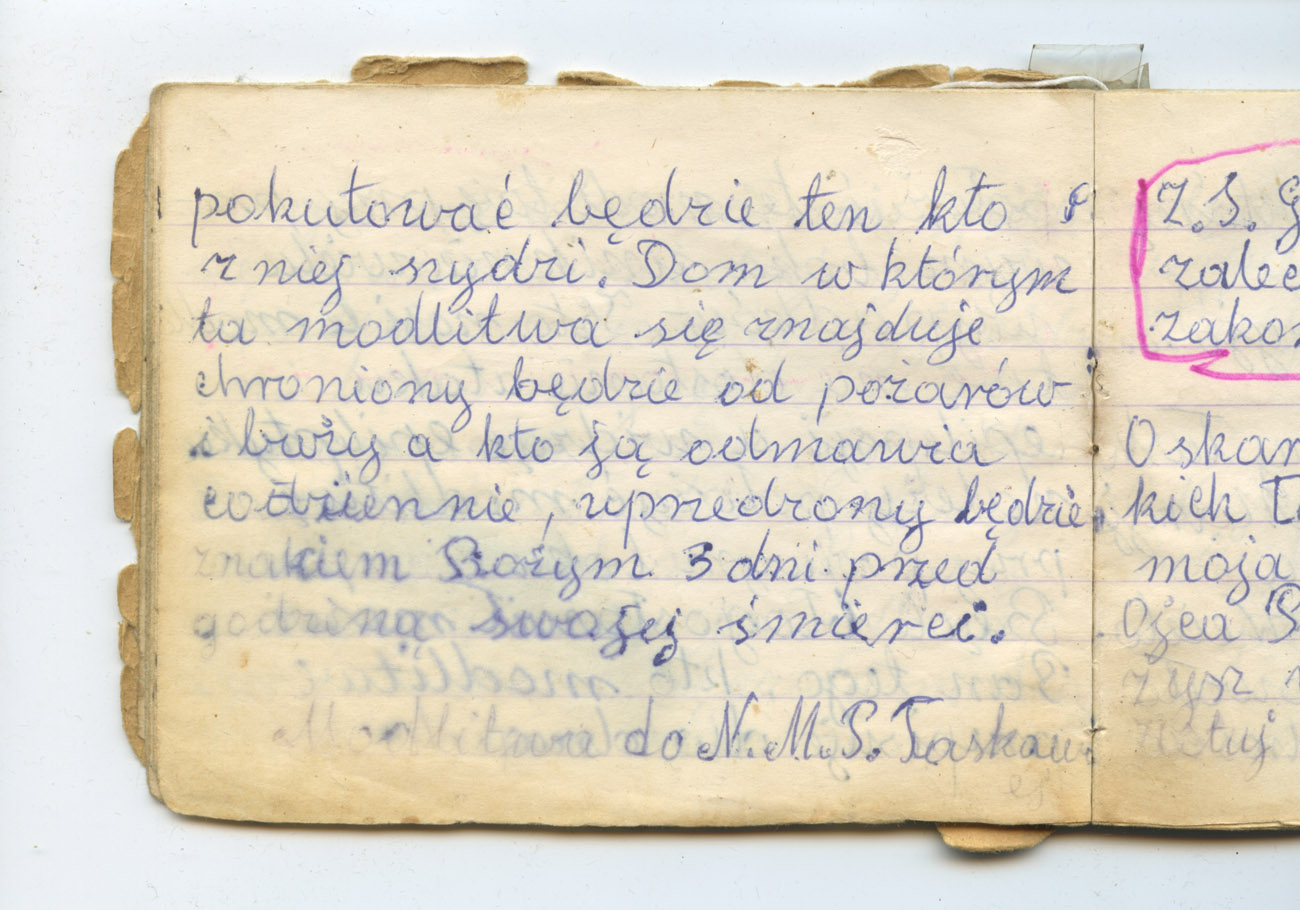 pokutować będzie ten kto
z niej szydzi. Dom w którym
ta modlitwa się znajduje
chroniony będzie od pożarów
i burzy a kto ją odmawia
codziennie, uprzedzony będzie
znakiem Bożym 3 dni przed
godziną swojej śmierci.
Modlitwa do N.M.P. Łaskaw
ej
Z.S. G
zalec
zakon
Oskar
kich Ł
moja
Ojca
żysz
ratuj